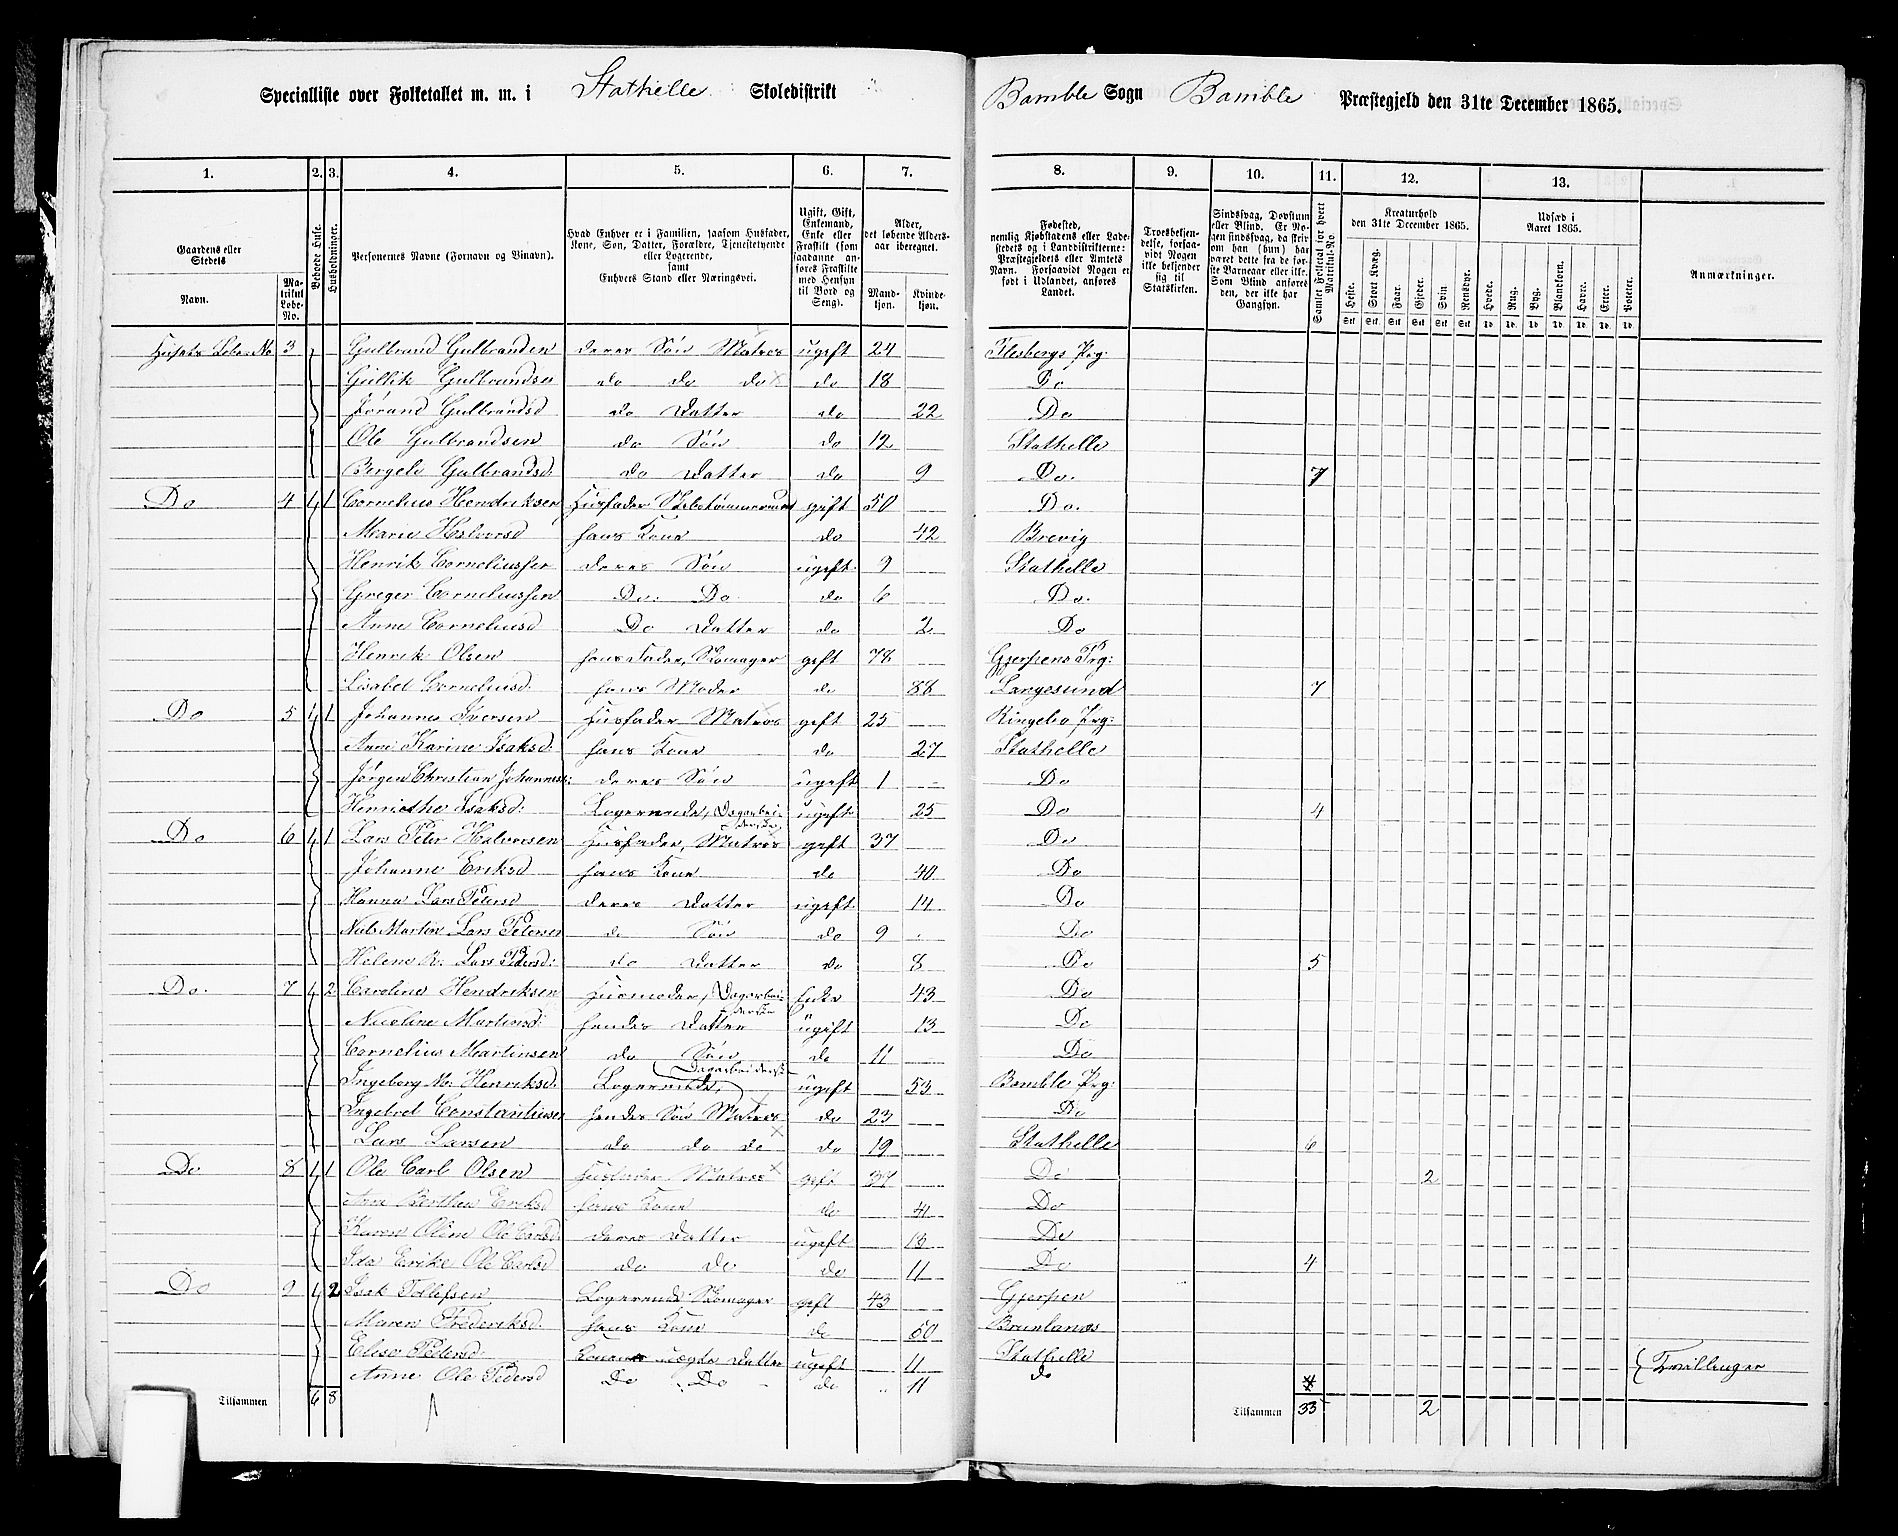 Specialliste over Folketallet m. m. i Stathelle Skoledistrikt Bamble Sogn Bamble Præstegjeld den 31te December 1865.
1. 2. 3. 4. 5. 6. 7. 8. 9. 10. 11. 12. 13.
Gaardens eller Stedets
Navn.
Matrikul Løbe-No.
Beboede Huse.
Husholdninger.
Personernes Navne (Fornavn og Tilnavn).
Hvad Enhver er i Familien, saasom Husfader, Kone, Søn, Datter, Forældre, Tjenestetyende eller Logerende, samt Enhvers Stand eller Næringsvei.
Ugift, Gift, Enkemand, Enke eller Fraskilt (som saadanne anføres Fraskilte med Hensyn til Bord og Seng).
Alder, det løbende Aldersaar iberegnet.
Mandkjøn. Kvindekjøn.
Fødested, nemlig Kjøbstadens eller Ladestedets og i Landdistrikterne: Præstegjeldets eller Amtets Navn. Forsaavidt Nogen er født i Udlandet, anføres Landet.
Troesbekjendelse, forsaavidt Nogen ikke bekjender sig til Statskirken.
Sindssvag, Døvstum eller Blind. Er Nogen sindssvag, da skrives om han (hun) har været dette fra de første Barneaar eller ikke. Som Blind anføres den, der ikke har Gangsyn.
Samlet Folketal for hvert Matrikul-No.
Kreaturhold den 31te December 1865.
Heste. Stort Kvæg. Faar. Gjeder. Svin. Rensdyr.
Stk. Stk. Stk. Stk. Stk. Stk.
Udsæd i Aaret 1865.
Hvede. Rug. Byg. Blandkorn. Havre. Erter. Poteter.
Td. Td. Td. Td. Td. Td. Td.
Anmærkninger.
Husets Løbe-No 3 Gulbrand Gulbrandsen deres Søn Matros ugift 24 Flesbergs Prg:
Gullik Gulbrandsen do do do do 18 Do
Jørand Gulbrandsd do Datter do 22 Do
Ole Gulbrandsen do Søn do 12 Stathelle
Bergele Gulbrandsd: do Datter do 9 Do. 7
Do 4 1 1 Cornelius Hendriksen Husfader Skibstømmermand gift 50 Do.
Marie Halvorsd hans Kone do 42 Brevig
Henrik Corneliussen deres Søn ugift 9 Stathelle
Greger Corneliussen Do: Do do 6 Do.
Anne Corneliusd Do Datter do 2 Do
Henrik Olsen hans Fader, Skomager gift 78 Gjerpens Prg:
Lisabet Corneliusd: hans Moder do 88 Langesund 7
Do 5 1 1 Johannes Iversen Husfader Matros gift 25 Ringebo Prg:
Anne Karine Isaksd: hans Kone do 27 Stathelle
Jørgen Christian Johanness: deres Søn ugift 1 Do
Henriethe Isaksd: Logerende, Dagarbeiderske ugift 25 Do 4
Do 6 1 1 Lars Peter Halvorsen Husfader, Matros gift 37 Do
Johanne Eriksd hans Kone do 40 Do
Hanna Lars Petersd deres Datter ugift 14 Do
Nils Martin Lars Petersen do Søn do 9 Do
Helene R. Lars Petersd: do Datter do 8 Do 5
Do. 7 1 2 Caroline Hendriksen Husmoder, Dagarbeiderske Enke 43 Do
Nicoline Martinsd: hendes Datter ugift 13 Do
Cornelius Martinsen do Søn do 11 Do
Ingeborg M. Henriksd: Logerende, Dagarbeiderske ugift 53 Bamble Prg:
Ingebret Constantiusen hendes Søn Matros do 23 Do
Lars Larsen do do do do 19 Stathelle 6
Do 8 1 1 Ole Carl Olsen Husfader, Matros gift 37 Do 2
Anne Berthea Eriksd hans Kone do 41 Do
Karen Oline Ole Carlsd: deres Datter ugift 13 Do
Ida Erike Ole Carlsd do do do 11 Do 4
Do 9 1 2 Isak Tollefsen Logerende Skomager gift 43 Gjerpen
Maren Frederiksd: hans Kone do 50 Brunlanæs
Elise Pedersd: Konens uægte Datter ugift 11 Stathelle } Tvillinger
Anne Ole Pedersd Do Do do 11 do 4
Tilsammen 6 8 Tilsammen 35 2